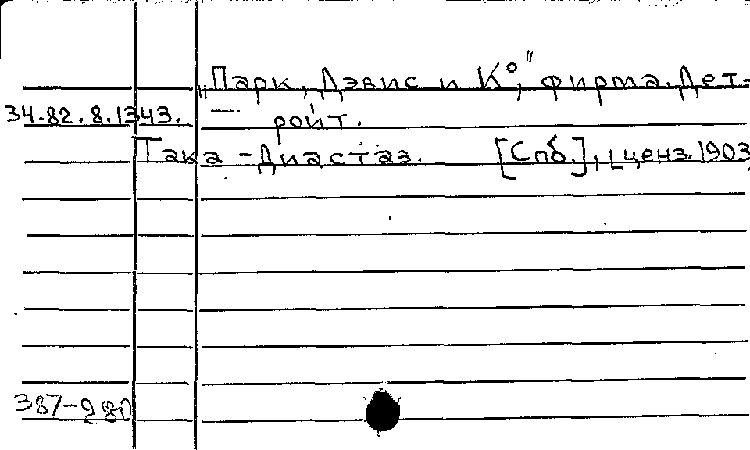 „Парк, Дэвис и К°," фирма. Дет-
34.82.8.1343. — ройт.
Така-Диастаз. [Спб.], ценз. 1903
387-980